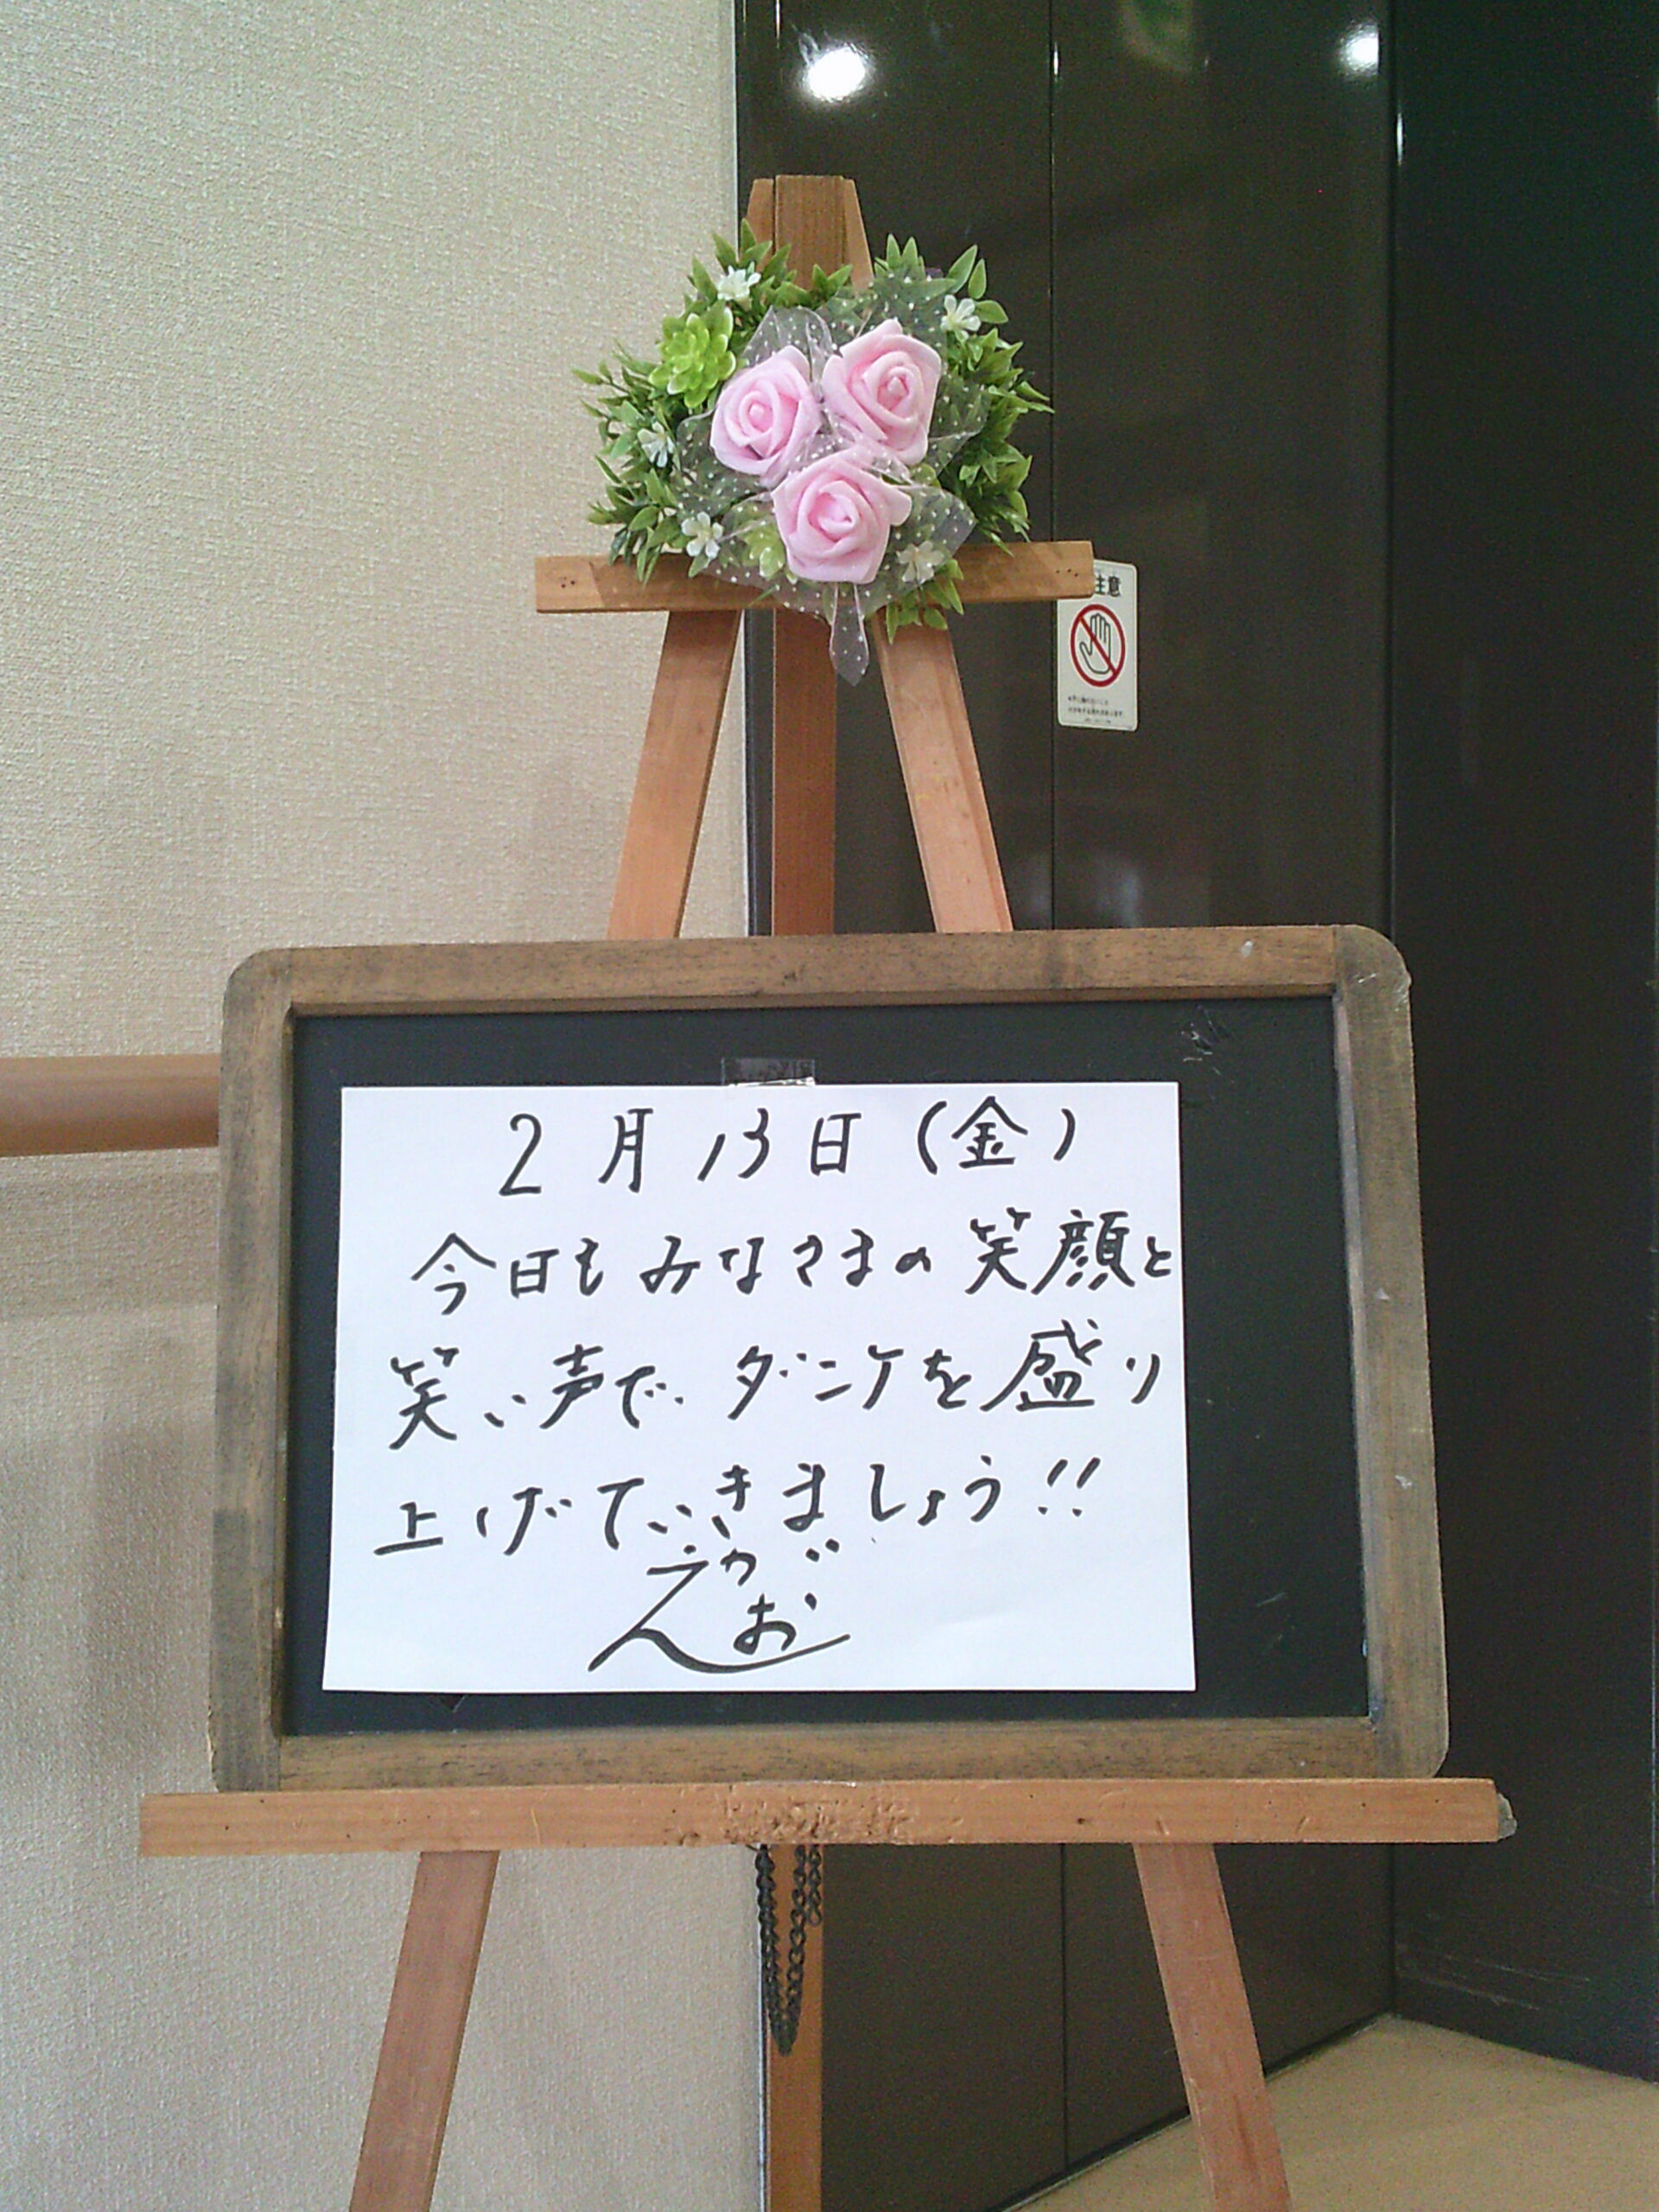 注意
2月13日(金)
今日もみなさまの笑顔と
笑い声で、ダンケを盛り
上げていきましょう!!
えがお